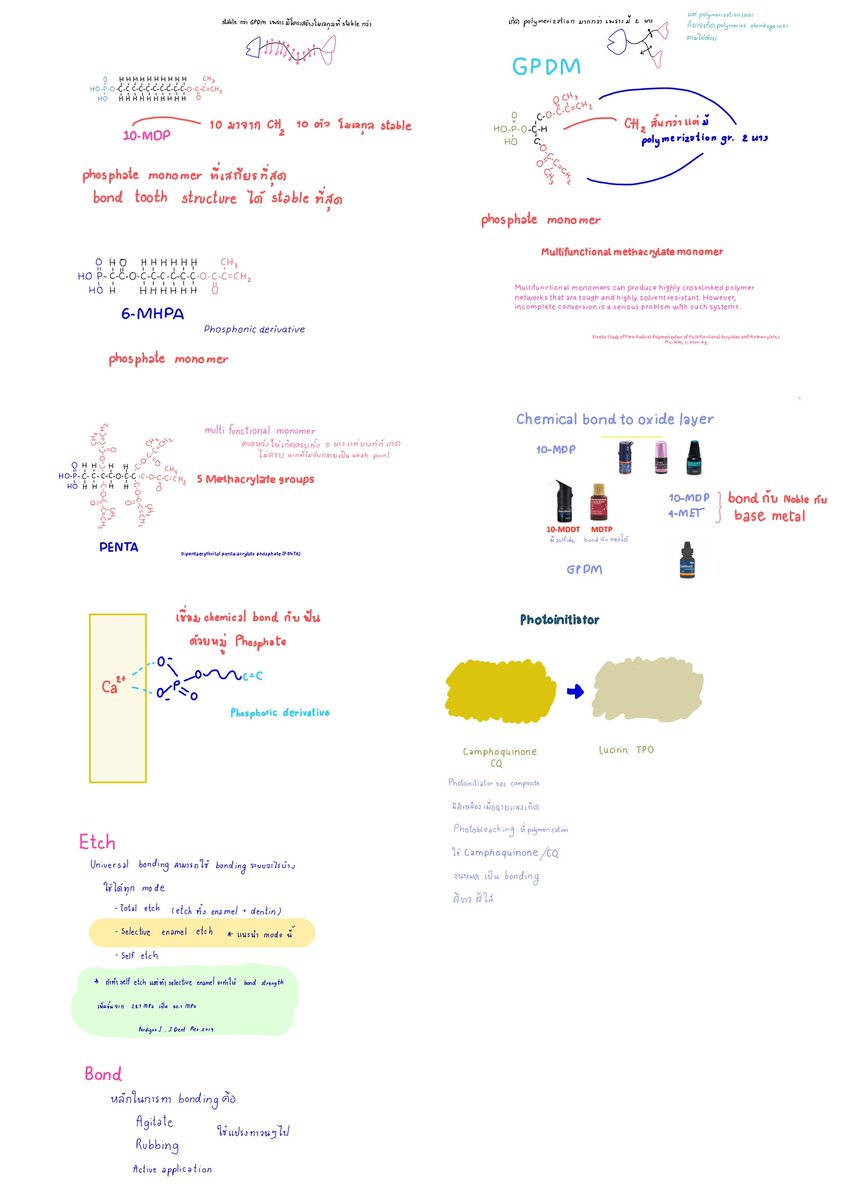 stable กว่า GPDM เพราะมีโครงสร้างโมเลกุลที่ stable กว่า
10-MDP
10 มาจาก CH2 10 ตัว โมเลกุล stable
phosphate monomer ที่เสถียรที่สุด
bond tooth structure ได้ stable ที่สุด
6-MHPA
Phosphonic derivative
phosphate monomer
multi functional monomer
5 Methacrylate groups
PENTA
Dipentaerythritol pentaacrylate phosphate (PENTA)
เชื่อม chemical bond กับฟัน
ด้วยหมู่ Phosphate
Ca2+
Phosphoric derivative
Etch
Universal bonding สามารถใช้ bonding ระบบอะไรบ้าง
ใช้ได้ทุก mode
- Total etch (etch ทั้ง enamel + dentin)
- Selective enamel etch * แนะนำ mode นี้
- Self etch
* ถ้าทำ self etch แต่ทำ selective enamel จะทำให้ bond strength
Bond
หลักในการทา bonding คือ
Agitate
Rubbing
Active application
ใช้แปรงทาวนๆไป
เกิด polymerization มากกว่า เพราะมี 2 แขน
แต่ polymerization เยอะ
ก็อาจเกิด polymerize shrinkage เยอะ
ตามไปด้วย
GPDM
CH2 สั้นกว่า แต่มี
polymerization gr. 2 หาง
phosphate monomer
Multifunctional methacrylate monomer
Multifunctional monomers can produce highly crosslinked polymer
networks that are tough and highly solvent resistant. However,
incomplete conversion is a serious problem with such systems.
Kinetic Study of Free-Radical Polymerization of Multifunctional Acrylates and Methacrylates
Chemical bond to oxide layer
10-MDP
10-MDDT
MDTP
มี sulfide
bond กับ ทองได้
10-MDP
4-MET
bond กับ Noble กับ
base metal
GPDM
Photoinitiator
Camphoquinone
CQ
Lucirin TPO
Photoinitiator ของ composite
มีสีเหลือง เมื่อฉายแสงเกิด
Photobleaching ที่ polymerization
ใช้ Camphoquinone /CQ
จนหมด เป็น bonding
สีขาว สีใส